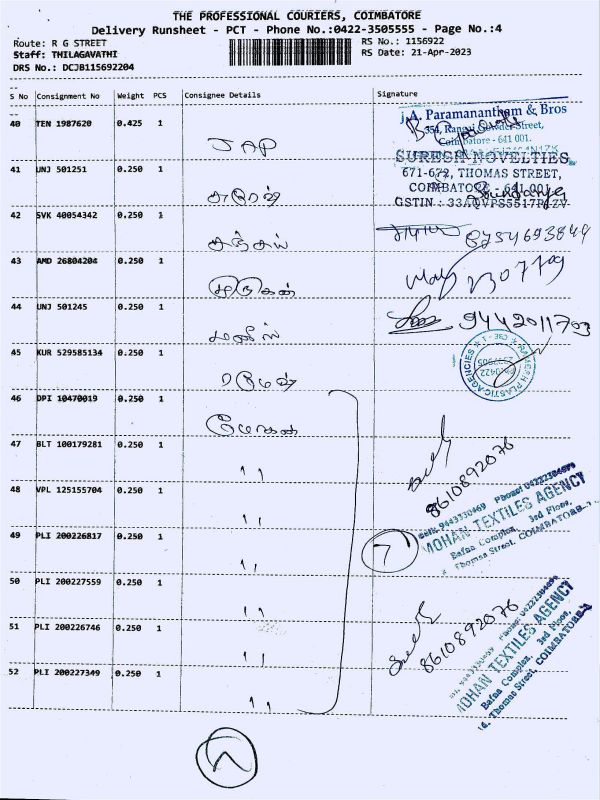 THE PROFESSIONAL COURIERS, COIMBATORE
Delivery Runsheet - PCT - Phone No.:0422-3505555 - Page No.:4
Route: R G STREET
RS No.: 1156922
Staff: THILAGAVATHI
RS Date: 21-Apr-2023
DRS No.: DCJB115692204
S No Consignment No Weight PCS Consignee Details Signature
40 TEN 1987620 0.425 1 JAP
J.A. Paramanantham & Bros
354, Rangai Gowder Street,
Coimbatore - 641 001.
41 UNJ 501251 0.250 1 சுரேஷ்
SURESH NOVELTIES
671-672, THOMAS STREET,
COIMBATORE - 641 001
GSTIN : 33AQVPS5517R1ZV
42 SVK 40054342 0.250 1 சஞ்சய் 8754693844
43 AMD 26804204 0.250 1 முருகன் 2307709
44 UNJ 501245 0.250 1 9442011703
45 KUR 529585134 0.250 1 ரமேஷ்
RAMESH PLASTIC AGENCIES
46 DPI 10470019 0.250 1 மோகன்
47 BLT 100179281 0.250 1 ''
8610892076
48 VPL 125155704 0.250 1 ''
MOHAN TEXTILES AGENCY
Bafna Complex, 3rd Floor,
Thomas Street, COIMBATORE-1
49 PLI 200226817 0.250 1 ''
7
50 PLI 200227559 0.250 1 ''
8610892076
51 PLI 200226746 0.250 1 ''
52 PLI 200227349 0.250 1 ''
MOHAN TEXTILES AGENCY
Bafna Complex, 3rd Floor,
Thomas Street, COIMBATORE-1